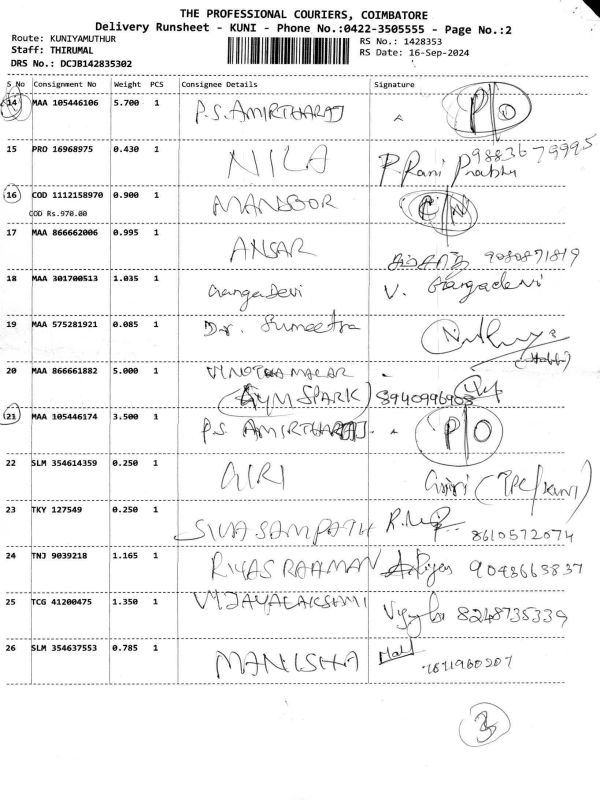 THE PROFESSIONAL COURIERS, COIMBATORE
Delivery Runsheet - KUNI - Phone No.:0422-3505555 - Page No.:2
Route: KUNIYAMUTHUR
RS No.: 1428353
Staff: THIRUMAL
RS Date: 16-Sep-2024
DRS No.: DCJB142835302
S No Consignment No Weight PCS Consignee Details Signature
14 MAA 105446106 5.700 1 P.S. AMIRTHARAJ P/O
15 PRO 16968975 0.430 1 NILA P. Rani Prabhu 9883679995
16 COD 1112158970 0.900 1 MANSOOR C/N
COD Rs.970.00
17 MAA 866662006 0.995 1 ANSAR 9080871819
18 MAA 301700513 1.035 1 GangaDevi V. Gangadevi
19 MAA 575281921 0.085 1 Dr. Sumeetra
20 MAA 866661882 5.000 1 VINOTHAMALAR
(AYM SPARK) 8940996908
21 MAA 105446174 3.500 1 P.S. AMIRTHARAJ. P/O
22 SLM 354614359 0.250 1 GIRI Giri
23 TKY 127549 0.250 1 SIVASAMPATH 8610572074
24 TNJ 9039218 1.165 1 RIYAS RAHMAN 9043663837
25 TCG 41200475 1.350 1 VIJAYALAKSHMI 8248735339
26 SLM 354637553 0.785 1 MANISHA 7871960207
3